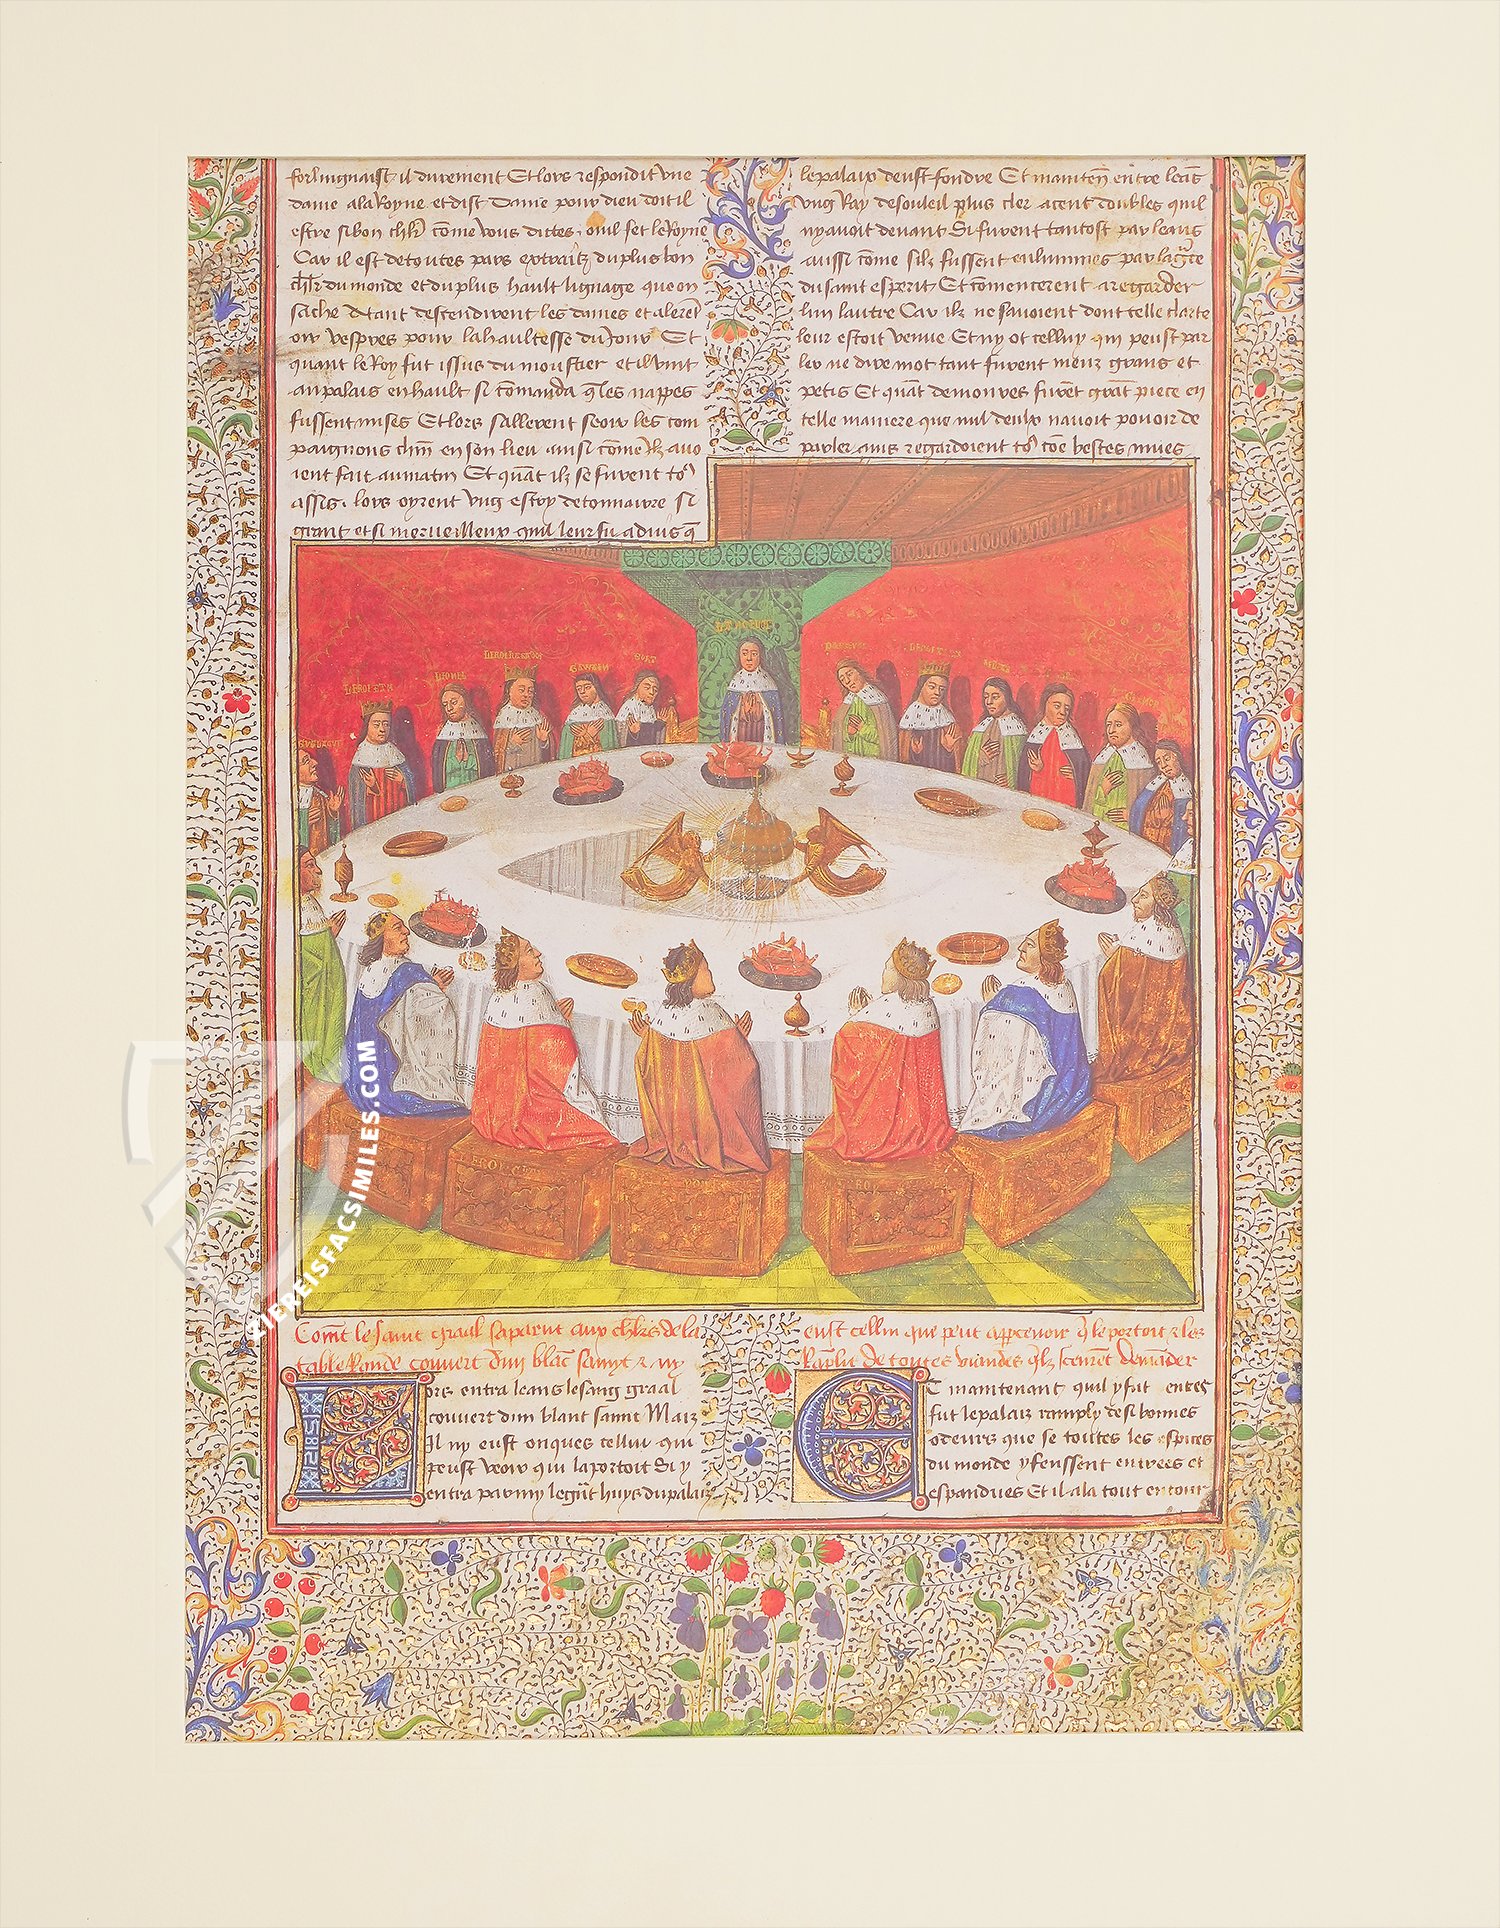 forlingnaist il durement Et lors respondit une
dame ala Royne et dist Dame pour dieu doit il
estre si bon chlr cōme vous dictes, ouil fet le Royne
Car il est de toutes pars extraitz du plus bon
chlr du monde et du plus hault lignage que on
sache Atant descendirent les dames et alerēt
oir vespres pour la haultesse du Jour Et
quant le Roy fut issus du moustier et il vint
au palais en hault si cōmanda q̄ les nappes
fussent mises Et lors sallerent seoir les com
paignons chūn en son lieu ausi cōme ilz auo
ient fait au matin Et quāt ilz se furent to9
assis, lors oyrent ung estroy de tonnairre si
grant et si merueilleux quil leur fu aduis q̄
le palaix deust fondre Et maintenāt entre leās
ung Ray de souleil plus cler a cent doubles quil
ny auoit deuant Si furent tantost par leans
aussi cōme silz fussent enlumines par la grāce
du saint esperit Et cōmencerent a regarder
lun lautre Car ilz ne sauoient dont telle clarte
leur estoit venue Et ny ot celluy qui peust par
ler ne dire mot tant furent meuz grans et
petis Et quāt demoures furēt grāt piece en
telle maniere que nul deulx nauoit pouoir de
parler ains regardoient to9 cōe bestes mues
LIONEL
GAUVAIN
LIEREISFACSIMILES.COM
Comēt le saint graal saparut aux chlrs de la
table Ronde couvert dun blāc samyt & ny
eust cellui que peut appceuoir q̄ le portoit & les
Rāplit de toutes viandes q̄lz sceurēt demāder
Lors entra leans le sang graal
couvert dun blanc samit Maiz
Il ny eust onques cellui qui
peust veoir qui la portoit Si y
entra parmy le grāt huys du palaiz
Et maintenant quil y fut entres
fut le palaiz remply de si bonnes
odeurs que se toutes les espices
du monde y feussent entrees et
espandues Et il ala tout entour